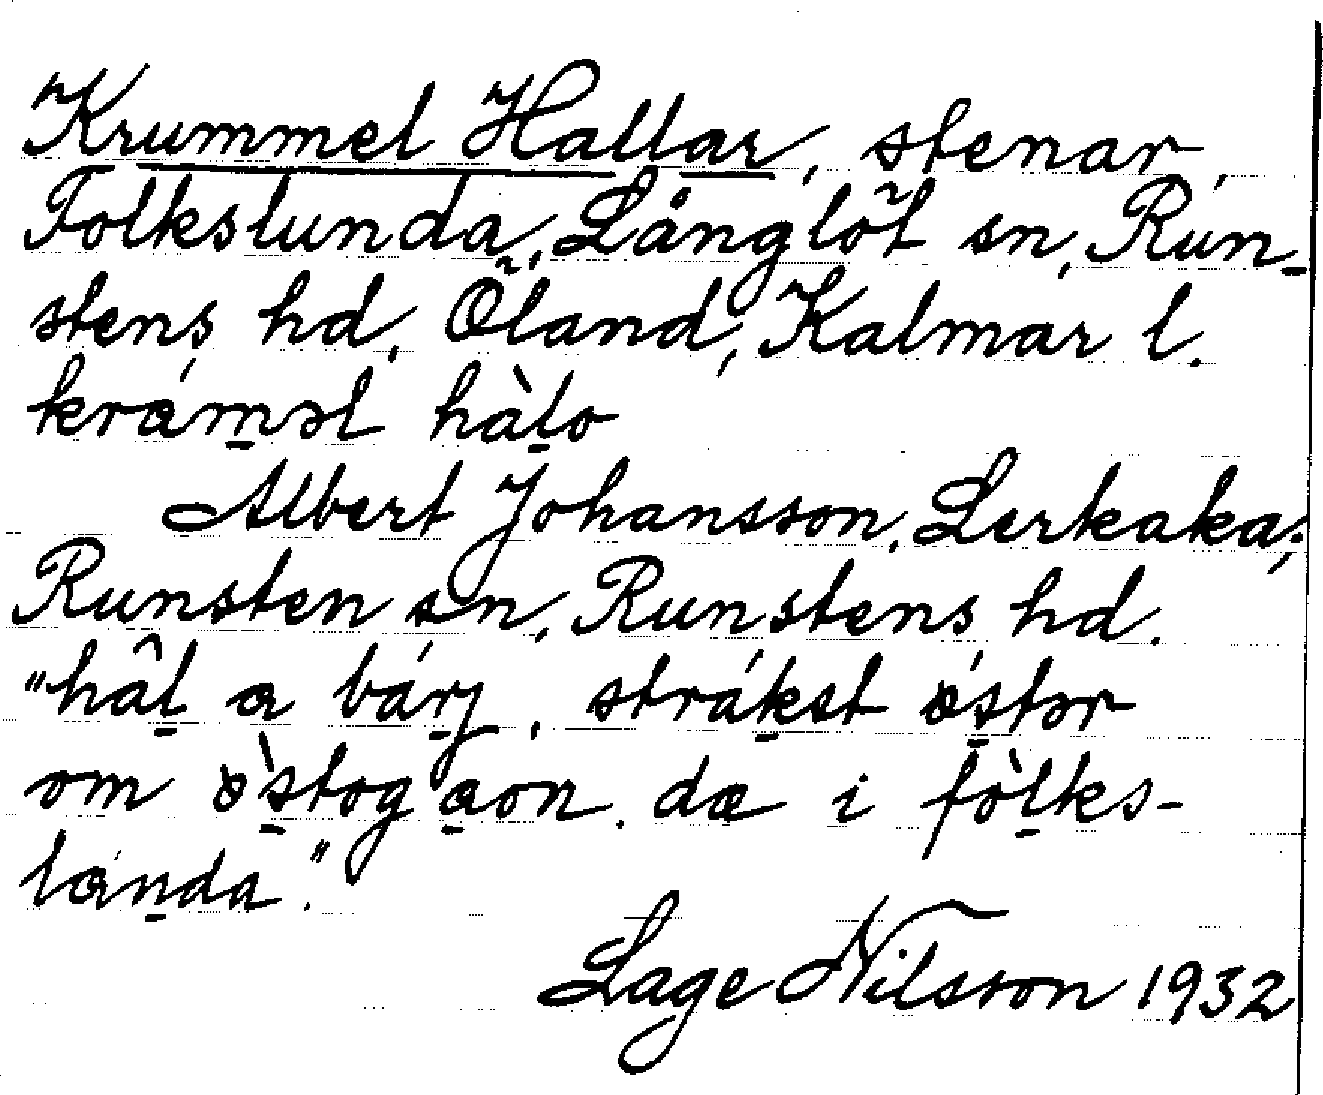 Krummel Hallar, stenar,
Folkslunda, Långlöt sn, Run-
stens hd, Öland, Kalmar l.
kráməl hàlo
Albert Johansson, Lerkaka,
Runsten sn, Runstens hd.
"hâl a bárj, strákst östər
om òstog aon. dæ i fòlks-
lánda."
Lage Nilsson 1932